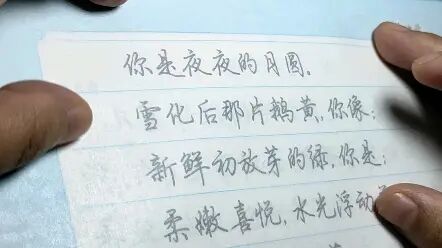 你是夜夜的月圆.
雪化后那片鹅黄,你像;
新鲜初放芽的绿,你是;
柔嫩喜悦,水光浮动